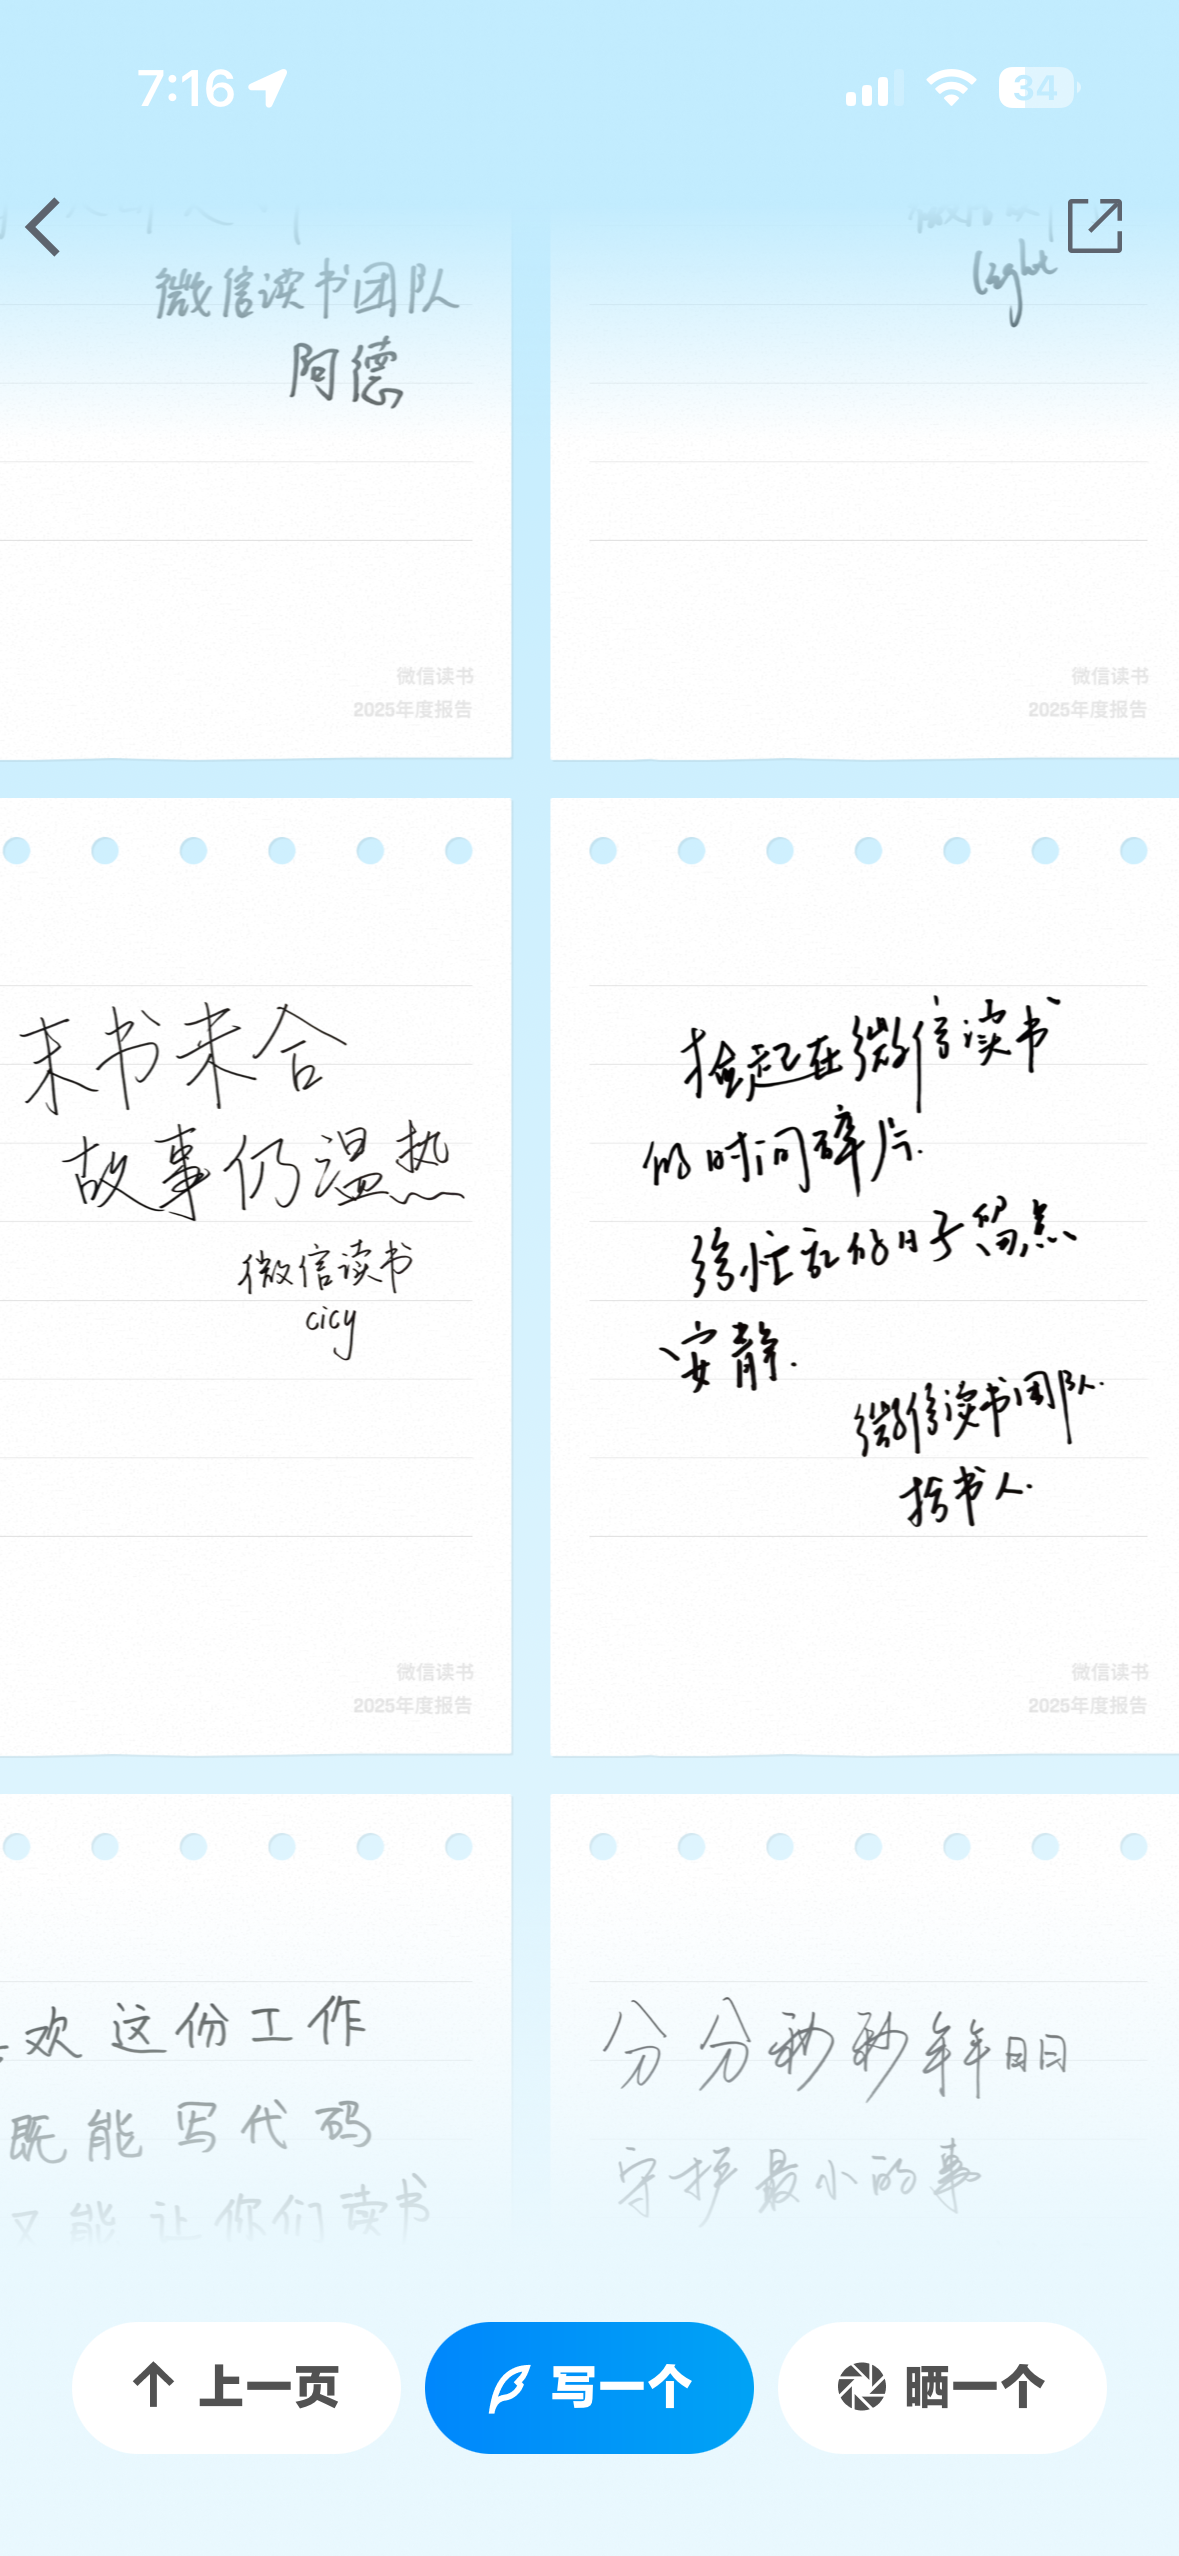 7:16
34
微信读书团队
阿德
light
微信读书
2025年度报告
微信读书
2025年度报告
末书未合
故事仍温热
微信读书
cicy
捡起在微信读书
的时间碎片.
给忙乱的日子留点
安静.
微信读书团队.
拾书人.
微信读书
2025年度报告
微信读书
2025年度报告
欢这份工作
既能写代码
又能让你们读书
分分秒秒年年日日
守护最小的事
上一页
写一个
晒一个